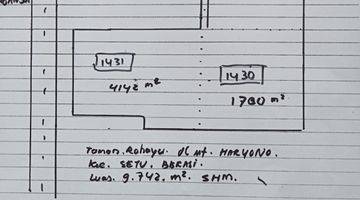 1431
4142 m²
1430
1700 m²
Taman. Rahayu. Jl Mt. HARYONO.
Kec. SETU. BEKASI.
Luas. 9.742. m². SHM.